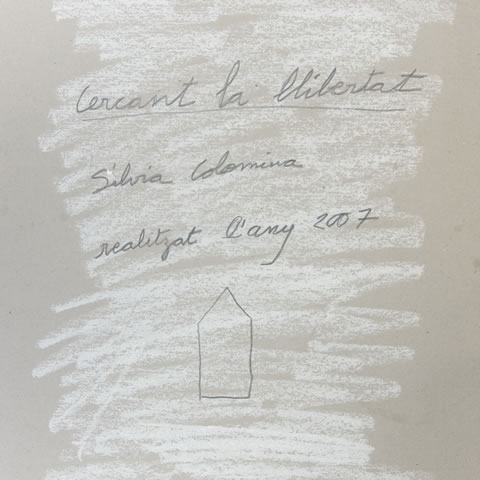 Cercant la llibertat
Sílvia Colomina
realitzat l'any 2007